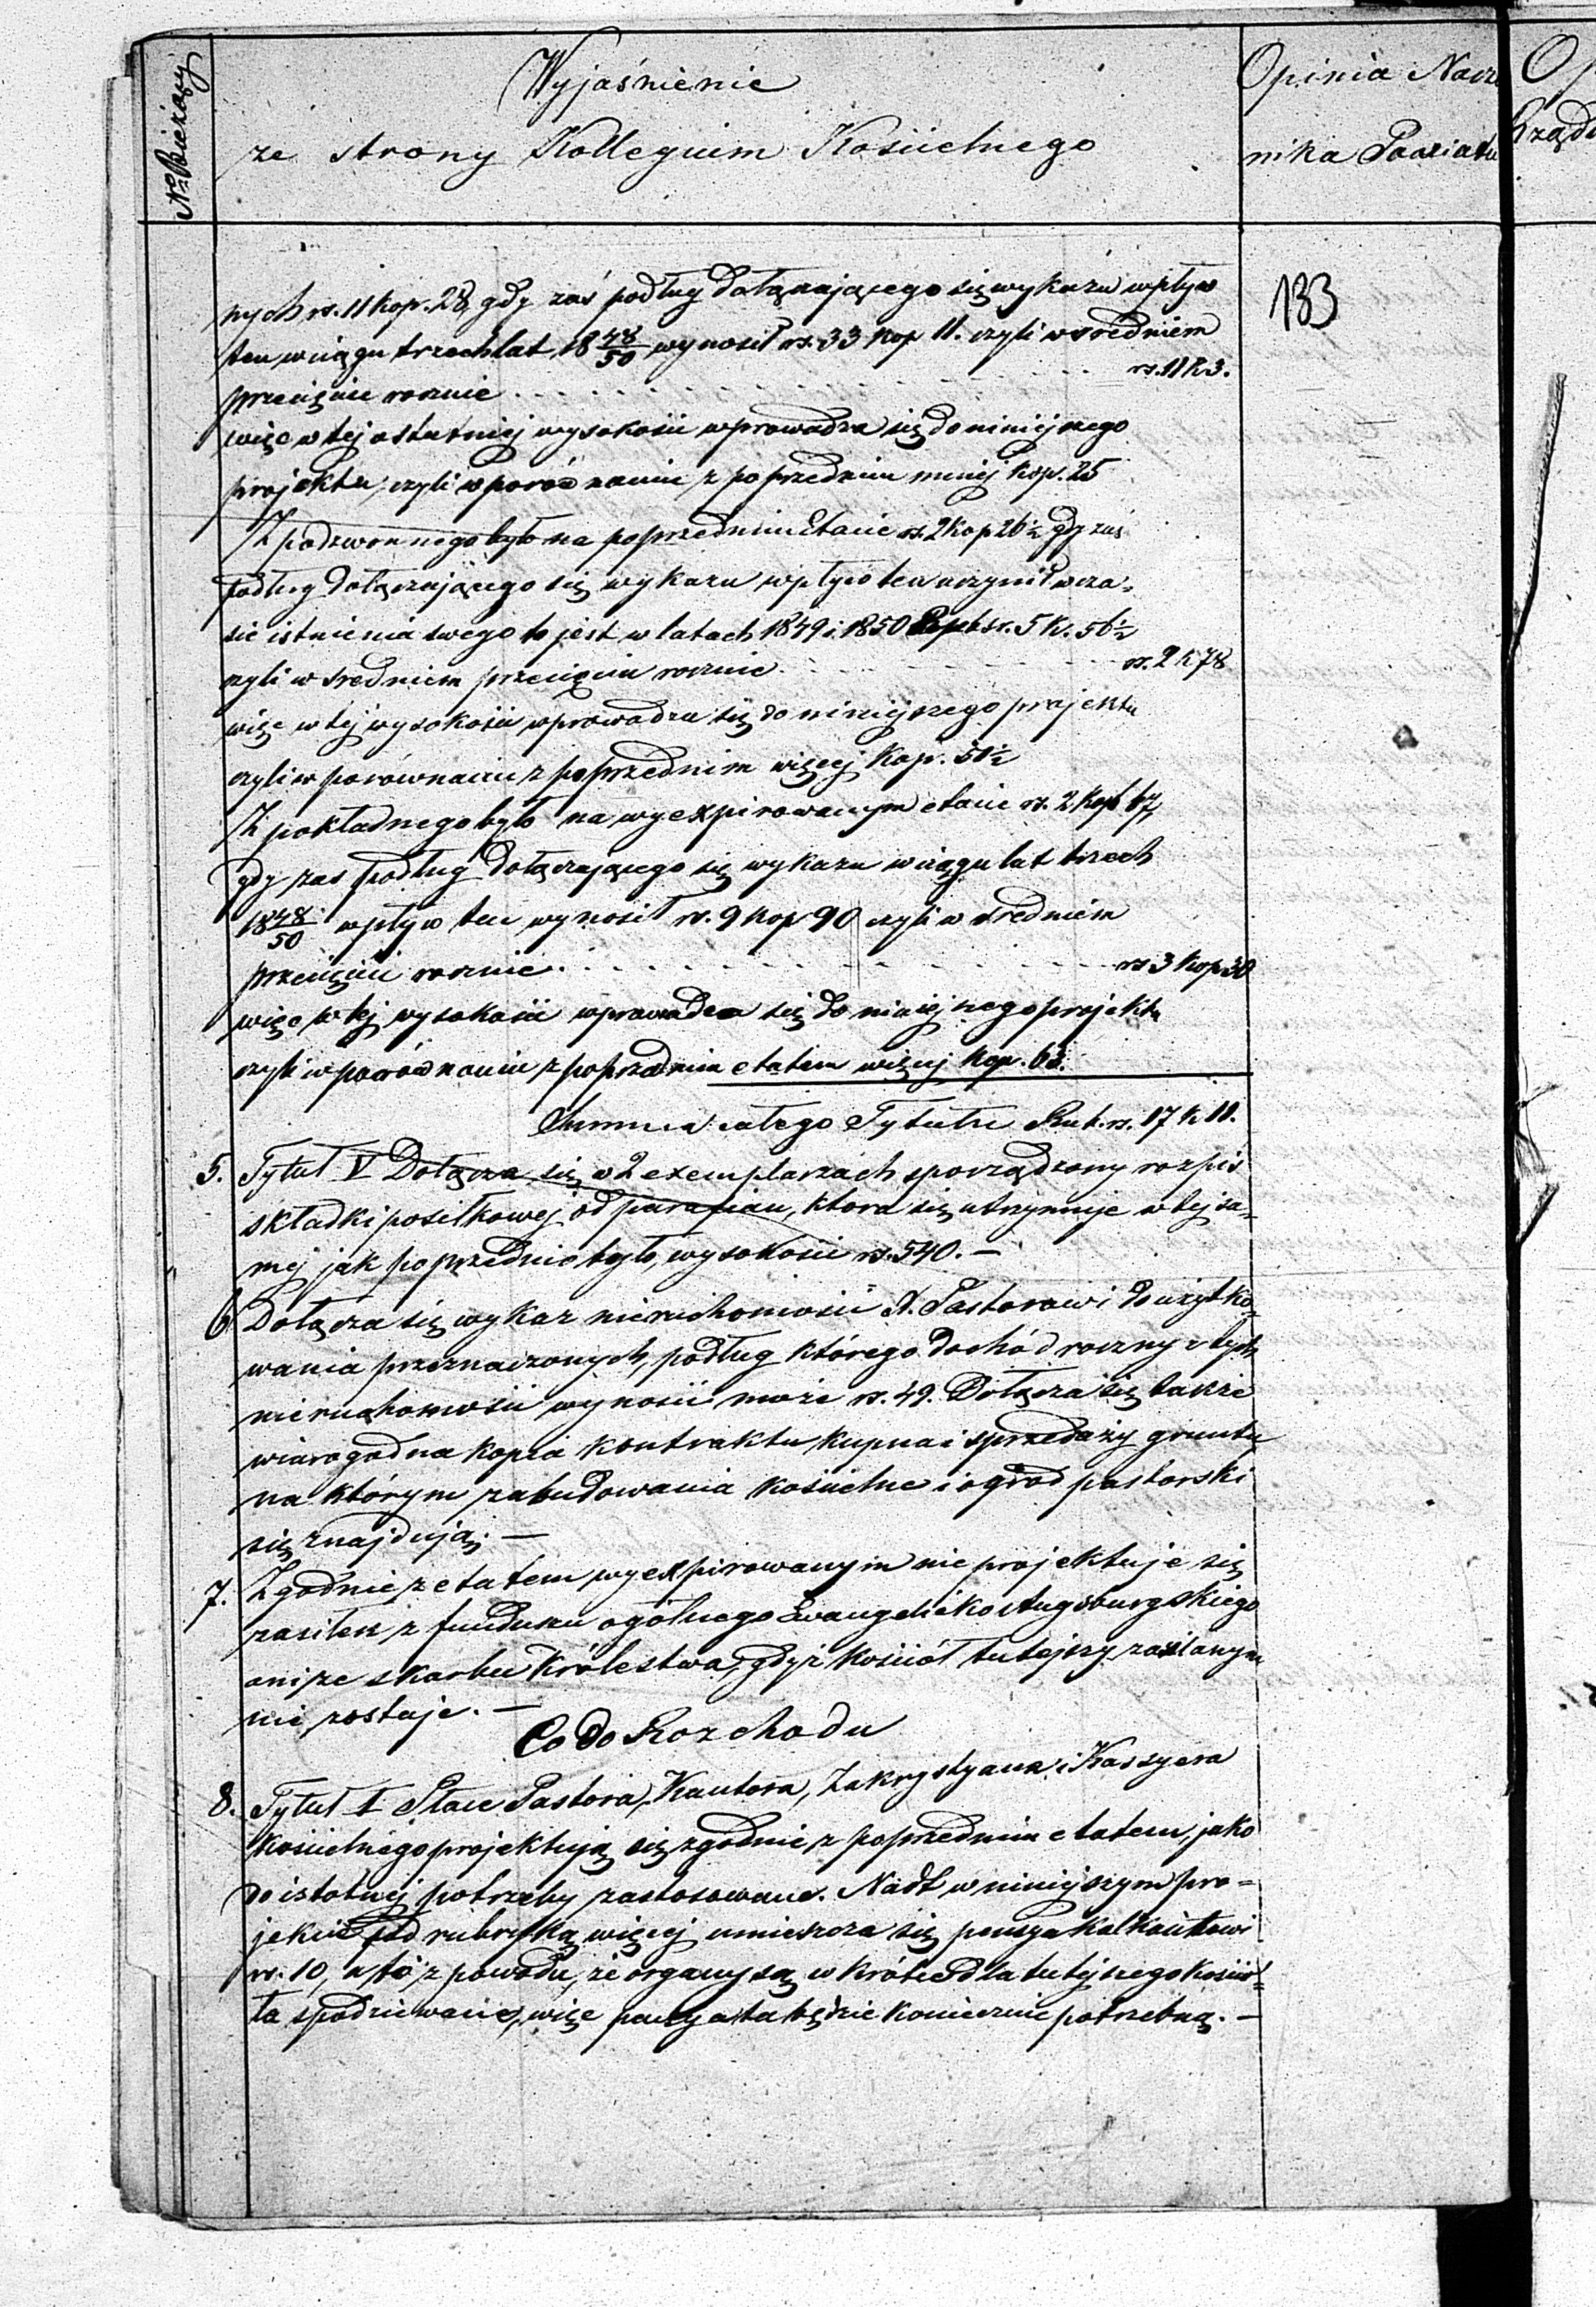 No Bieżący
Wyjaśnienie
ze strony Kollegium Kościelnego
Opinia Nacz
nika Powiatu
Op
Rządu
133
nych rs. 11 kop. 28, gdy zaś podług dołączającego się wykazu wpływ
ten w ciągu trzech lat 18 48/50 wynosił rs. 33 kop 11. czyli w srednim
przecięciu rocznie . . . . . . rs. 11 k 3.
więc w tej ostatniej wysokości wprowadza się do niniejszego
projektu, czyli w porównaniu z poprzednim mniej kop. 25
Z podzwonnego było na poprzednim Etacie rs. 2 kop 26½ gdy zaś
podług dołączającego się wykazu wpływ ten uczynił w cza-
sie istnienia swego to jest w latach 1849 i 1850 rs. 5 k. 56½
czyli w średniem przecięciu rocznie . . . . . rs. 2 k 78
więc w tej wysokości wprowadza się do niniejszego projektu
czyli w porównaniu z poprzednim więcej kop. 51½
Z pokładnego było na wyexpirowanym etacie rs. 2 kop 67,
gdy zas podług dołączającego się wykazu w ciągu lat trzech
18 48/50 wpływ ten wynosił rs. 9 kop 90 czyli w sredniem
przecięciu rocznie . . . . . . rs 3 kop 30
więc w tej wysokości wprowadza się do niniejszego projektu
czyli w porównaniu z poprzednim etatem więcej kop. 63.
Summa całego Tytułu rs. 17 k 11.
5. Tytuł V Dołącza się w 2 exemplarzach sporządzony rozpis
składki posiłkowej od parafian, ktora się utrzymuje w tej sa-
mej jak poprzednio było, wysokości rs. 540. —
6. Dołącza się wykaz nieruchomości X. Pastorowi do użytko-
wania przeznaczonych, podług którego dochód roczny z tych
nieruchomości wynosić może rs. 49. Dołącza się także
wiarogodna kopia kontraktu kupna i sprzedaży gruntu
na którym zabudowania kościelne i ogród pastorski
się znajdują. —
7. Zgodnie z etatem wyexpirowanym nie projektuje się
zasiłek z funduszu ogólnego Ewangelicko Augsburgskiego
ani ze skarbu Królestwa, gdyż kościół tutejszy zasilanym
nie zostaje. —
Co do Rozchodu
8. Tytuł I Płace Pastora, Kantora, Zakrystyana i Kassyera
kościelnego projektują się zgodnie z poprzednim etatem, jako
do istotnej potrzeby zastosowane. Nadt w niniejszym pro-
jekcie pod rubryką więcej umieszcza się pensya kalkantowi
rs. 10, a to z powodu, że organy są w krótce dla tutejszego kościo-
ła spodziewane, więc pensya ta będzie koniecznie potrzebną. —